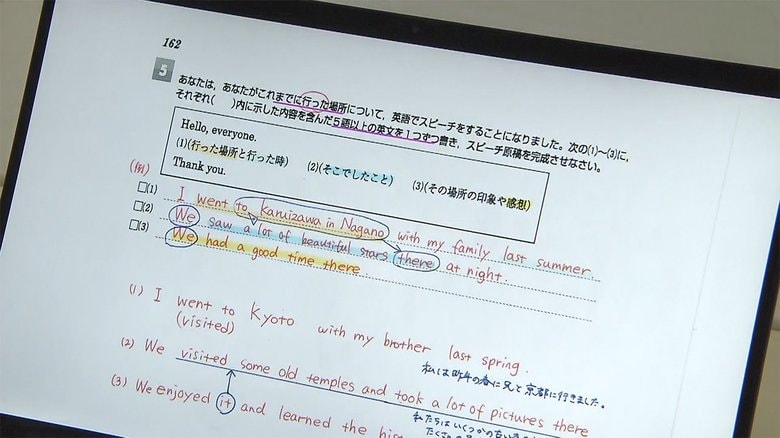 162
5
あなたは、あなたがこれまでに行った場所について、英語でスピーチをすることになりました。次の(1)～(3)に、
それぞれ(　)内に示した内容を含んだ5語以上の英文を1つずつ書き、スピーチ原稿を完成させなさい。
Hello, everyone.
(1)(行った場所と行った時) (2)(そこでしたこと) (3)(その場所の印象や感想)
Thank you.
(例)
□(1) I went to Karuizawa in Nagano with my family last summer.
□(2) We saw a lot of beautiful stars there at night.
□(3) We had a good time there
(1) I went to Kyoto with my brother last spring.
(visited)
私は昨年の春に兄と京都に行きました。
(2) We visited some old temples and took a lot of pictures there
私たちはいくつかの古い
たくさんの
(3) We enjoyed it and learned the